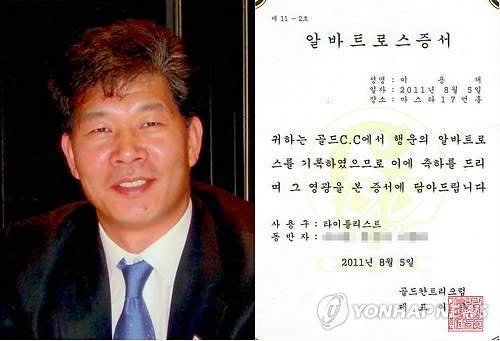 제 11-2호
알바트로스증서
성명 : 이 용 재
일자 : 2011년 8월 5일
장소 : 마스타 17번 홀
귀하는 골드C.C에서 행운의 알바트로
스를 기록하였으므로 이에 축하를 드리
며 그 영광을 본 증서에 담아드립니다
사 용 구 : 타이틀리스트
동 반 자 :
2011년 8월 5일
골드컨트리크럽
대 표 이
YONHAPNEWS